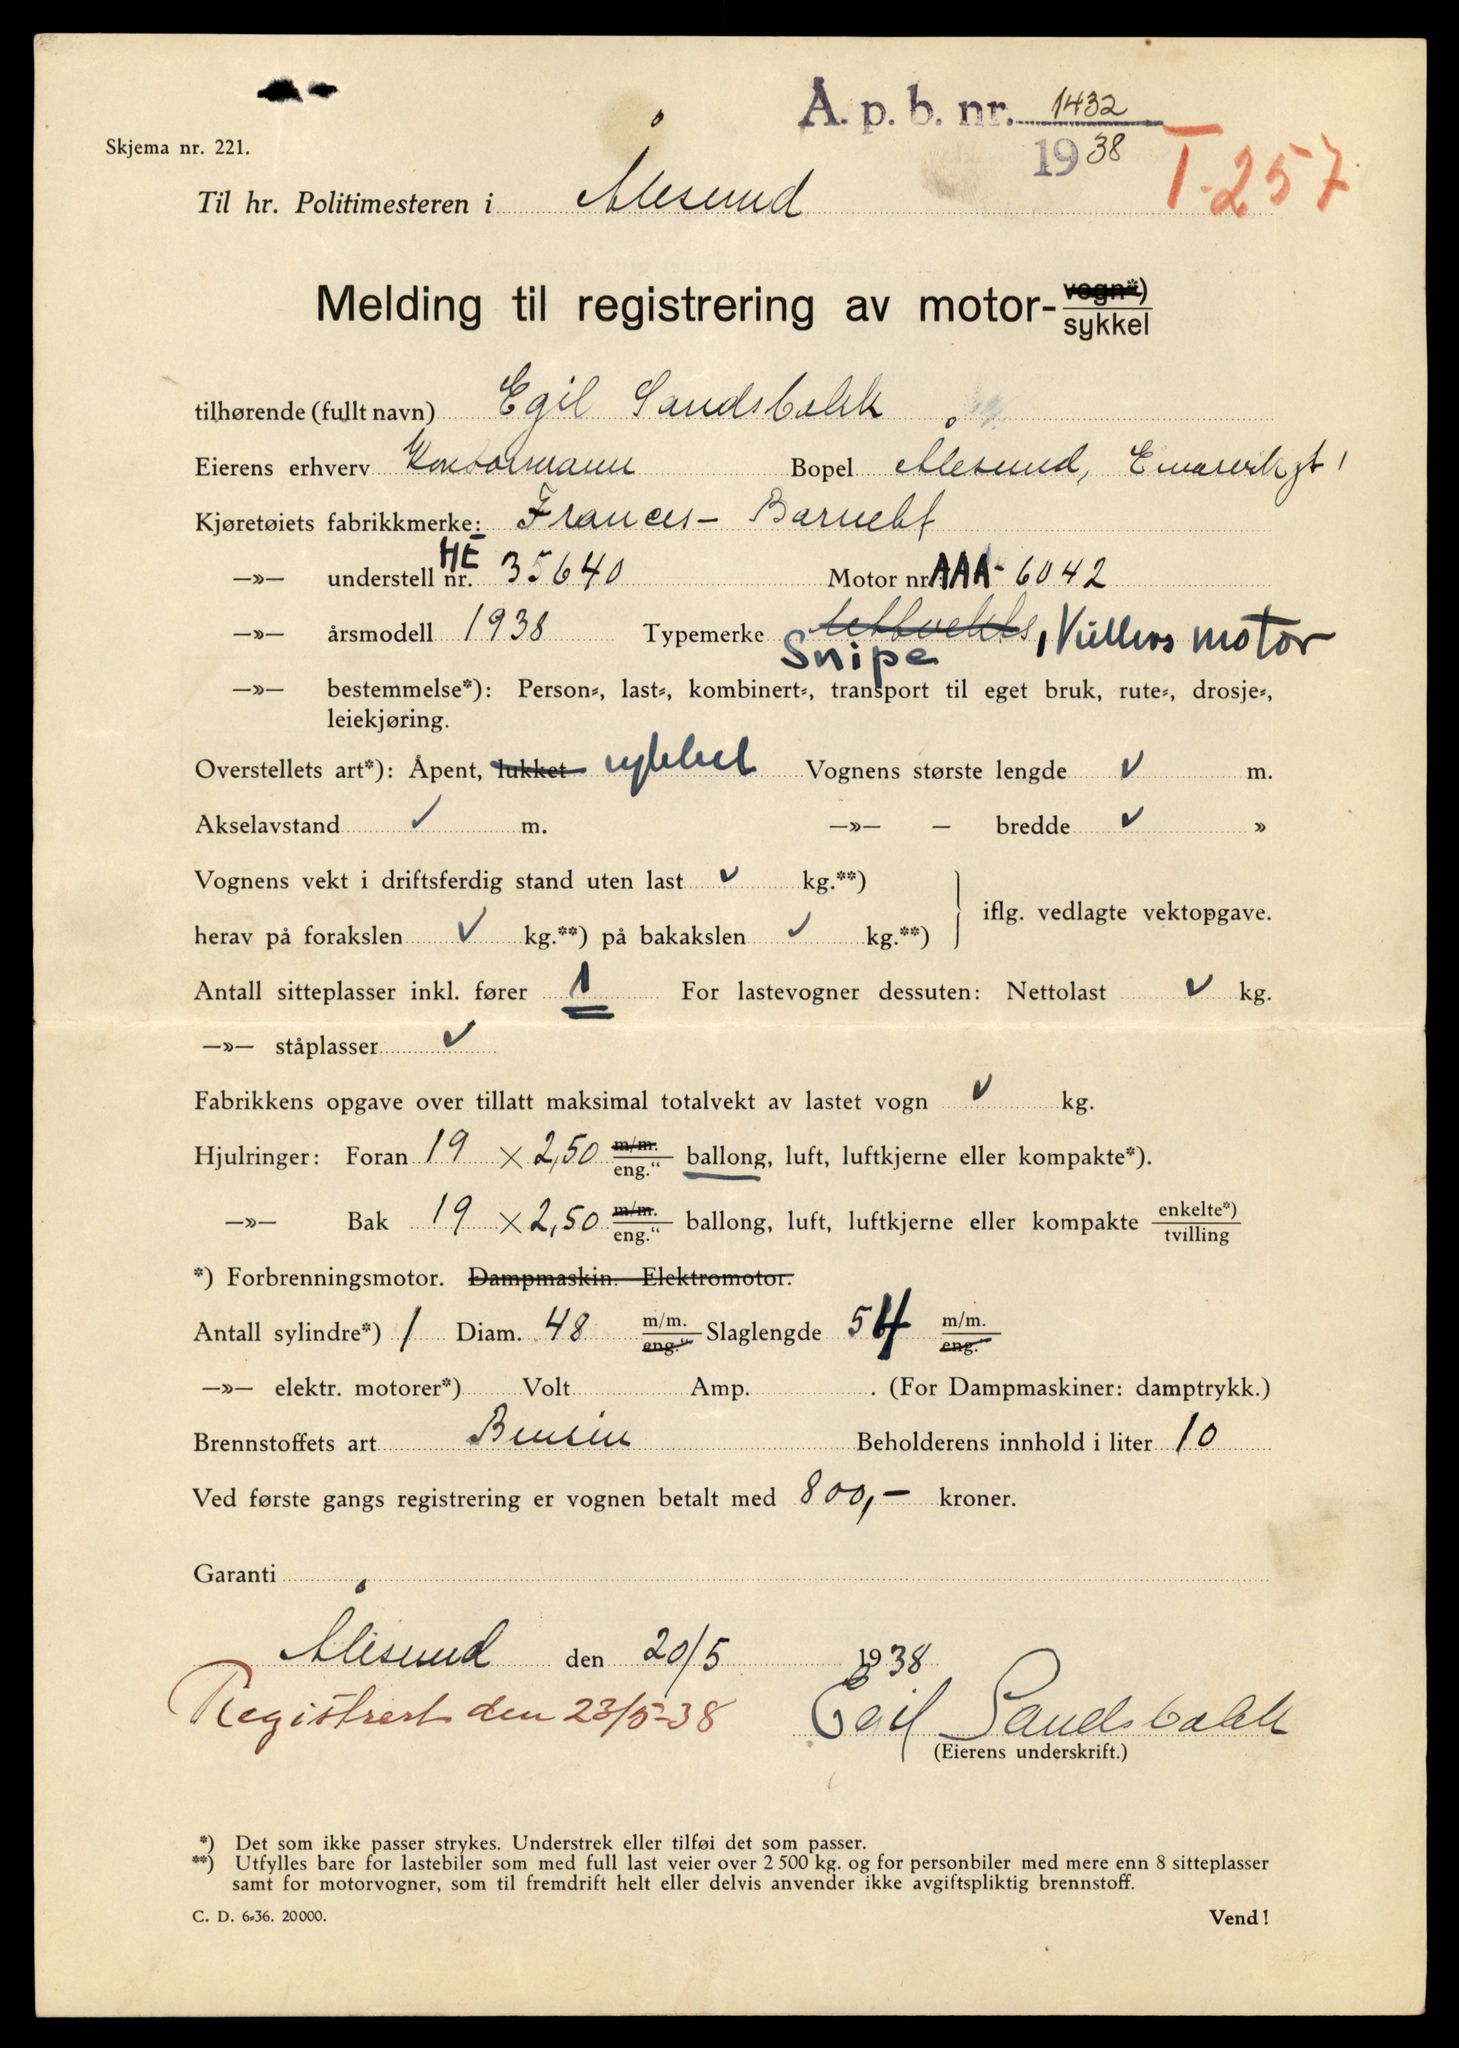 Å. p. b. nr. 1432
1938
T-257
Skjema nr. 221.
Til hr. Politimesteren i Ålesund
Melding til registrering av motor-vogn*) sykkel
tilhørende (fullt navn) Egil Sandsbakk
Eierens erhverv Kontormann Bopel Ålesund, Einarvikgt 1
Kjøretøiets fabrikkmerke: Frances-Barnett
—»— understell nr. HE 35640 Motor nr. AAA-6042
—»— årsmodell 1938 Typemerke lettvekts, Villers motor
Snipe
—»— bestemmelse*): Person-, last-, kombinert-, transport til eget bruk, rute-, drosje-,
leiekjøring.
Overstellets art*): Åpent, lukket sykkel Vognens største lengde ✓ m.
Akselavstand ✓ m. —»— — bredde ✓ »
Vognens vekt i driftsferdig stand uten last ✓ kg.**)
herav på forakslen ✓ kg.**) på bakakslen ✓ kg.**) } iflg. vedlagte vektopgave.
Antall sitteplasser inkl. fører 1 For lastevogner dessuten: Nettolast ✓ kg.
—»— ståplasser ✓
Fabrikkens opgave over tillatt maksimal totalvekt av lastet vogn ✓ kg.
Hjulringer: Foran 19 × 2,50 m/m. eng." ballong, luft, luftkjerne eller kompakte*).
—»— Bak 19 × 2,50 m/m. eng." ballong, luft, luftkjerne eller kompakte enkelte*) tvilling
*) Forbrenningsmotor. Dampmaskin. Elektromotor.
Antall sylindre*) 1 Diam. 48 m/m. eng." Slaglengde 54 m/m. eng."
—»— elektr. motorer*) Volt Amp. . (For Dampmaskiner: damptrykk.)
Brennstoffets art Bensin Beholderens innhold i liter 10
Ved første gangs registrering er vognen betalt med 800,- kroner.
Garanti
Ålesund den 20/5 1938
Registrert den 23/5-38 Egil Sandsbakk
(Eierens underskrift.)
*) Det som ikke passer strykes. Understrek eller tilføi det som passer.
**) Utfylles bare for lastebiler som med full last veier over 2 500 kg. og for personbiler med mere enn 8 sitteplasser
samt for motorvogner, som til fremdrift helt eller delvis anvender ikke avgiftspliktig brennstoff.
C. D. 6-36. 20000. Vend!